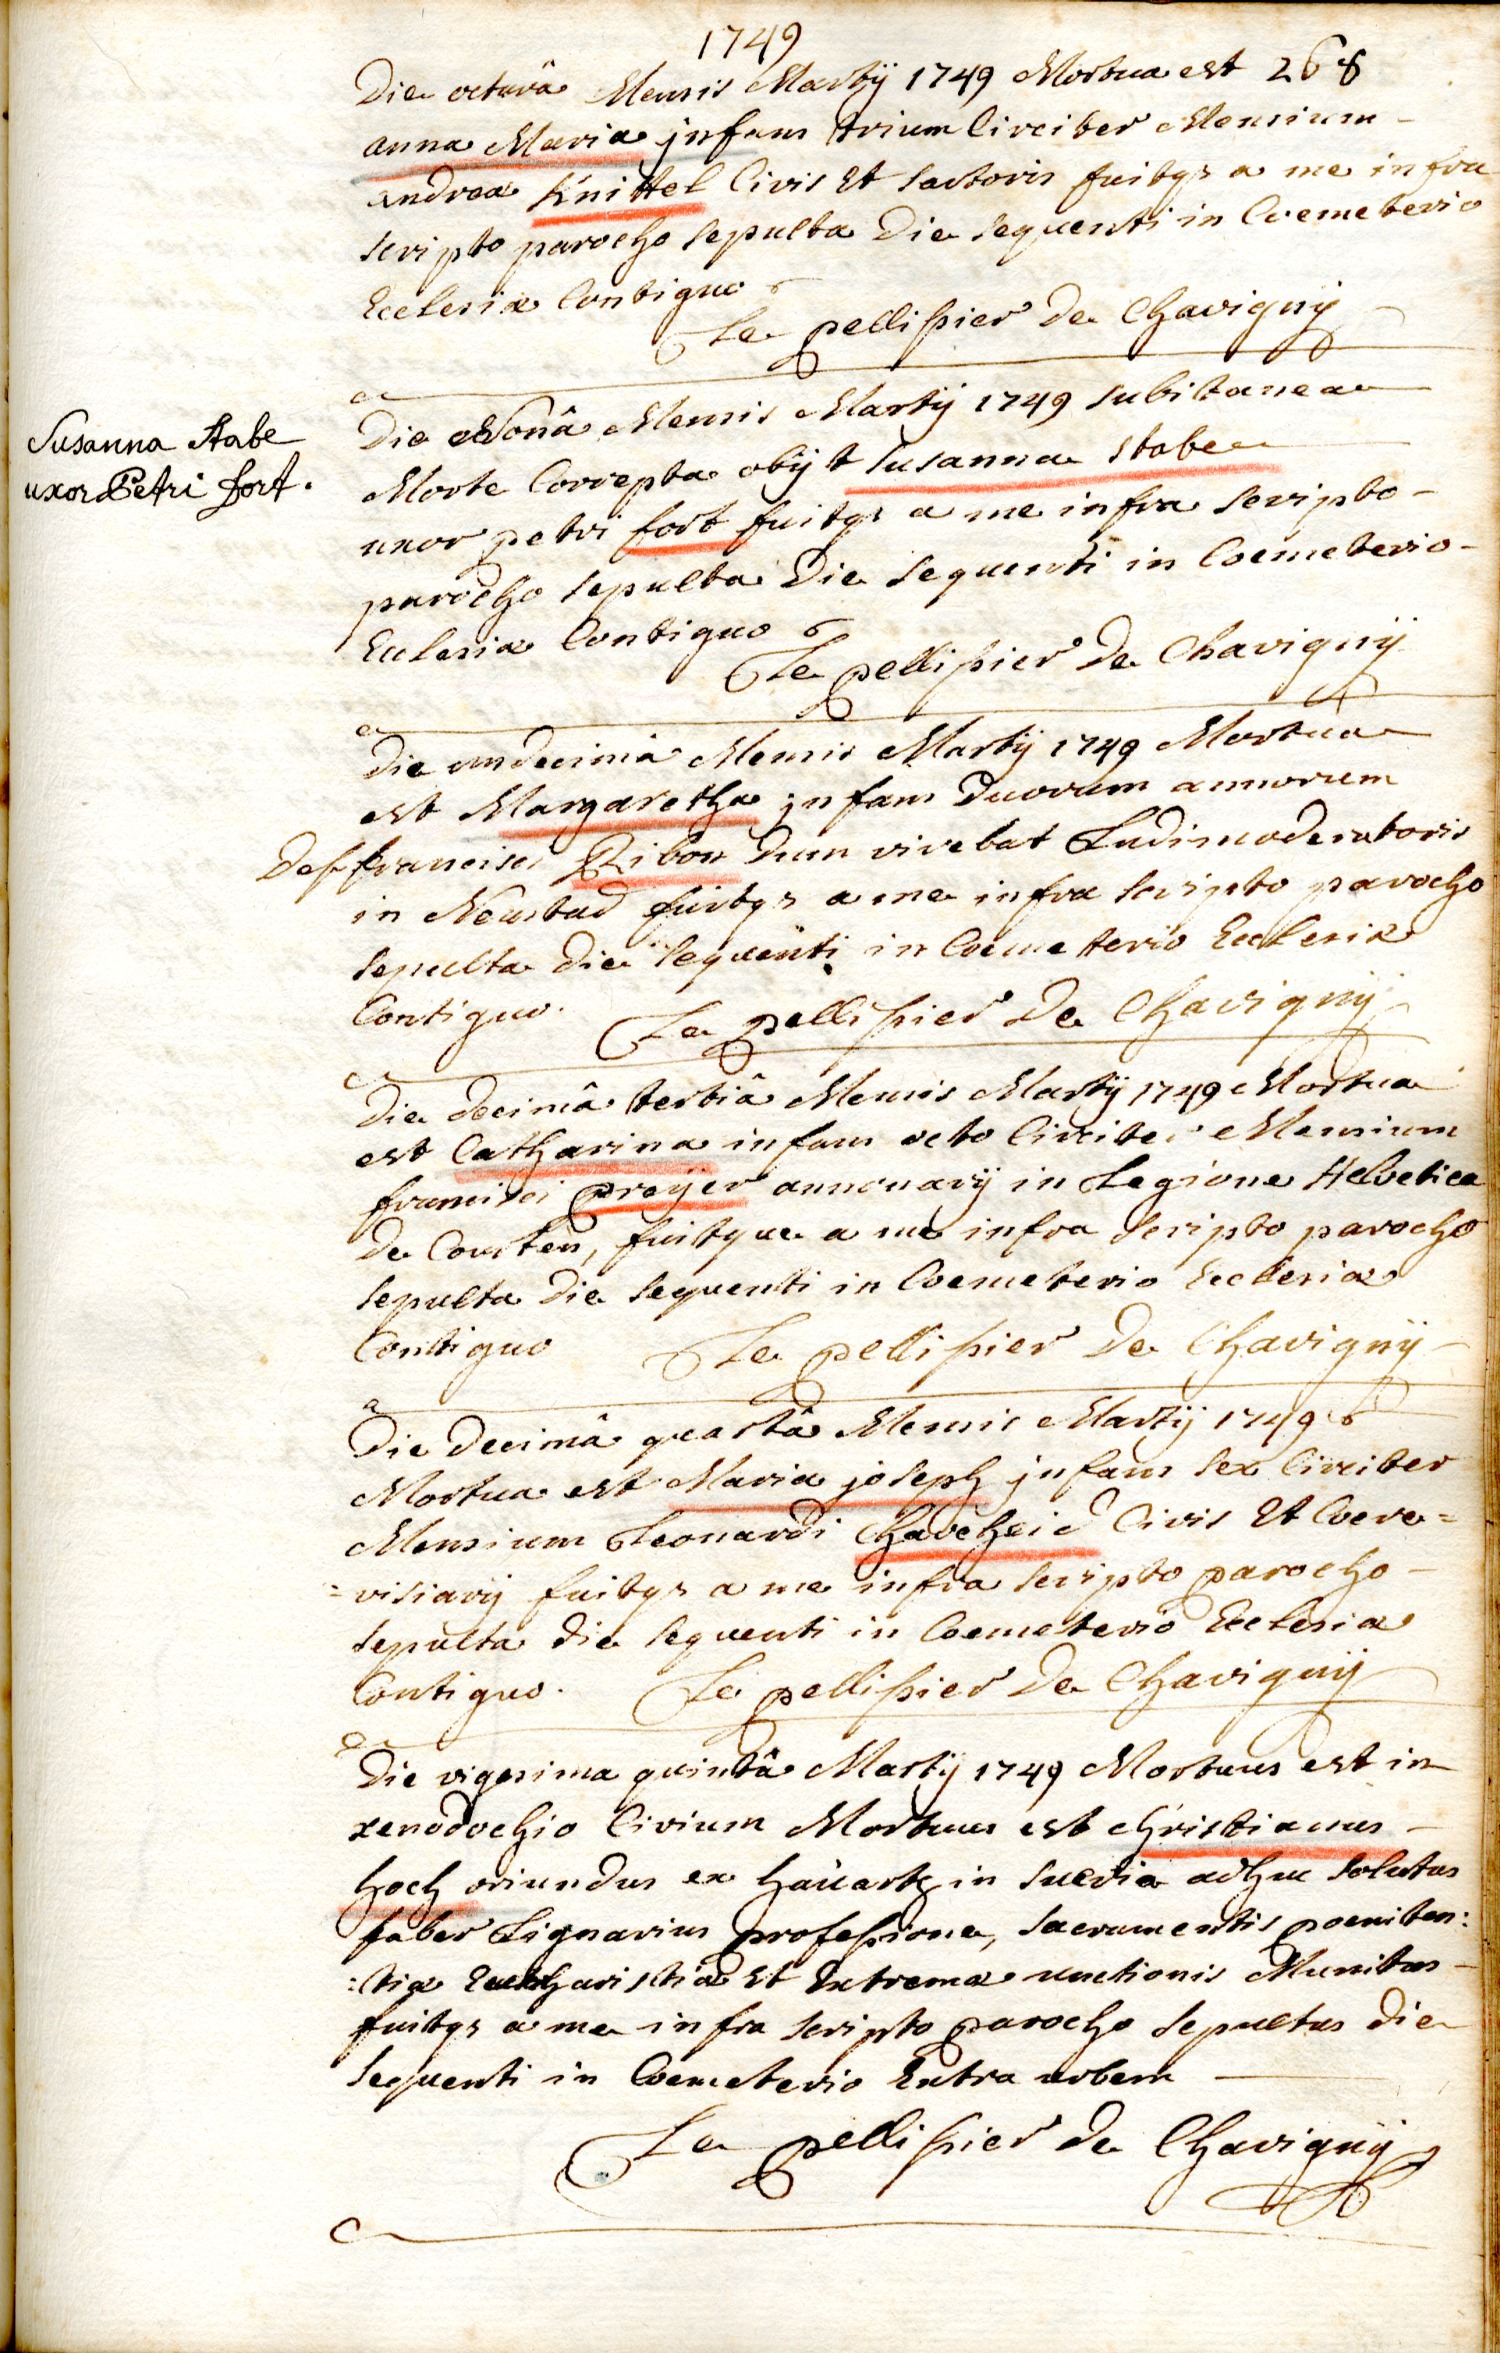 1749
Die octavâ Mensis Martij 1749 Mortua est 268
anna Maria jnfans trium Circiter Mensium -
andreæ Knittel Civis Et sartoris fuitqs a me infra
scripto parocho sepulta Die sequenti in Coemeterio
Ecclesiæ Contiguo
Le pellissier De Chavignÿ
Susanna Stabe
uxor Petri fort.
Die Nonâ Mensis Martij 1749 subitanea
Morte Correpta obijt susanna stabe
uxor petri fort fuitqs a me infra scripto -
parocho sepulta Die sequenti in Coemeterio -
Ecclesiæ Contiguo
Le pellissier De Chavignÿ
Die undecimâ Mensis Martij 1749 Mortua
est Margaretha jnfans Duorum annorum
Def francisci Ribon Dum vivebat Ludimoderatoris
in Neustad fuitqs a me infra scripto parocho
sepulta die sequenti in Coemeterio Ecclesiæ
Contiguo. Le pellissier De Chavignÿ
Die decimâ tertiâ Mensis Martij 1749 Mortua
est Catharina infans octo Circiter Mensium
francisci preÿer annonarij in Legione Helvetica
De Courten, fuitque a me infra scripto parocho
sepulta Die sequenti in Coemeterio Ecclesiæ
Contiguo Le pellissier De Chavignÿ
Die Decimâ quartâ Mensis Martij 1749
Mortua est Maria joseph jnfans sex Circiter
Mensium Leonardi Chavheid Civis Et Coere=
=visiarij fuitqs a me infra scripto parocho -
sepulta die sequenti in Coemeterio Ecclesiæ
Contiguo. Le pellissier De Chavignÿ
Die vigesima quintâ Martij 1749 Mortuus est in
xenodochio Civium Mortuus est christianus -
hoch oriundus ex haüark in sueviâ adhuc solutus
faber Lignarius professione, sacramentis poeniten:
:tiæ Eucharistiæ Et Extremæ unctionis Munitus -
fuitqs a me infra scripto parocho sepultus die
sequenti in Coemeterio Extra urbem
Le pellissier de Chavignÿ